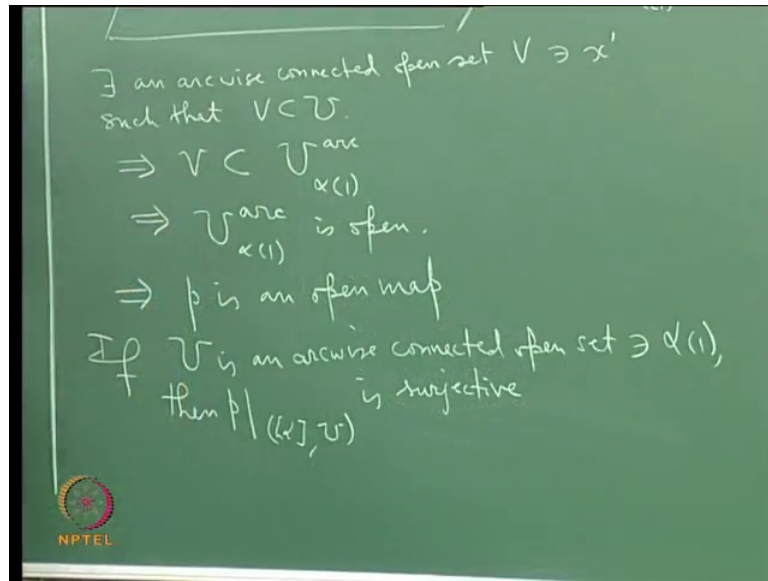 ∃ an arcwise connected open set V ∋ x'
such that V ⊂ U.
⇒ V ⊂ U^{arc}_{α(1)}
⇒ U^{arc}_{α(1)} is open.
⇒ p is an open map
If U is an arcwise connected open set ∋ α(1),
then p|_{([α], U)} is surjective
NPTEL